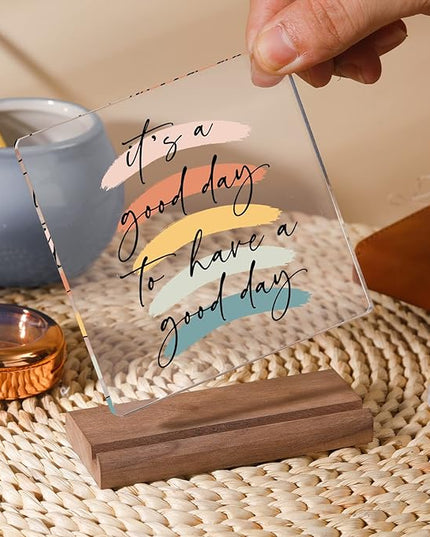 it's a
good day
to have a
good day